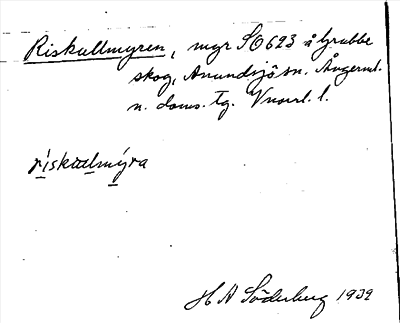 Riskullmyren, myr SO 623 å Grubbe
skog, Anundsjö sn. Ångerml.
n. doms. Tg. Vnorrl. l.
riskullmýra
H A Söderberg 1932